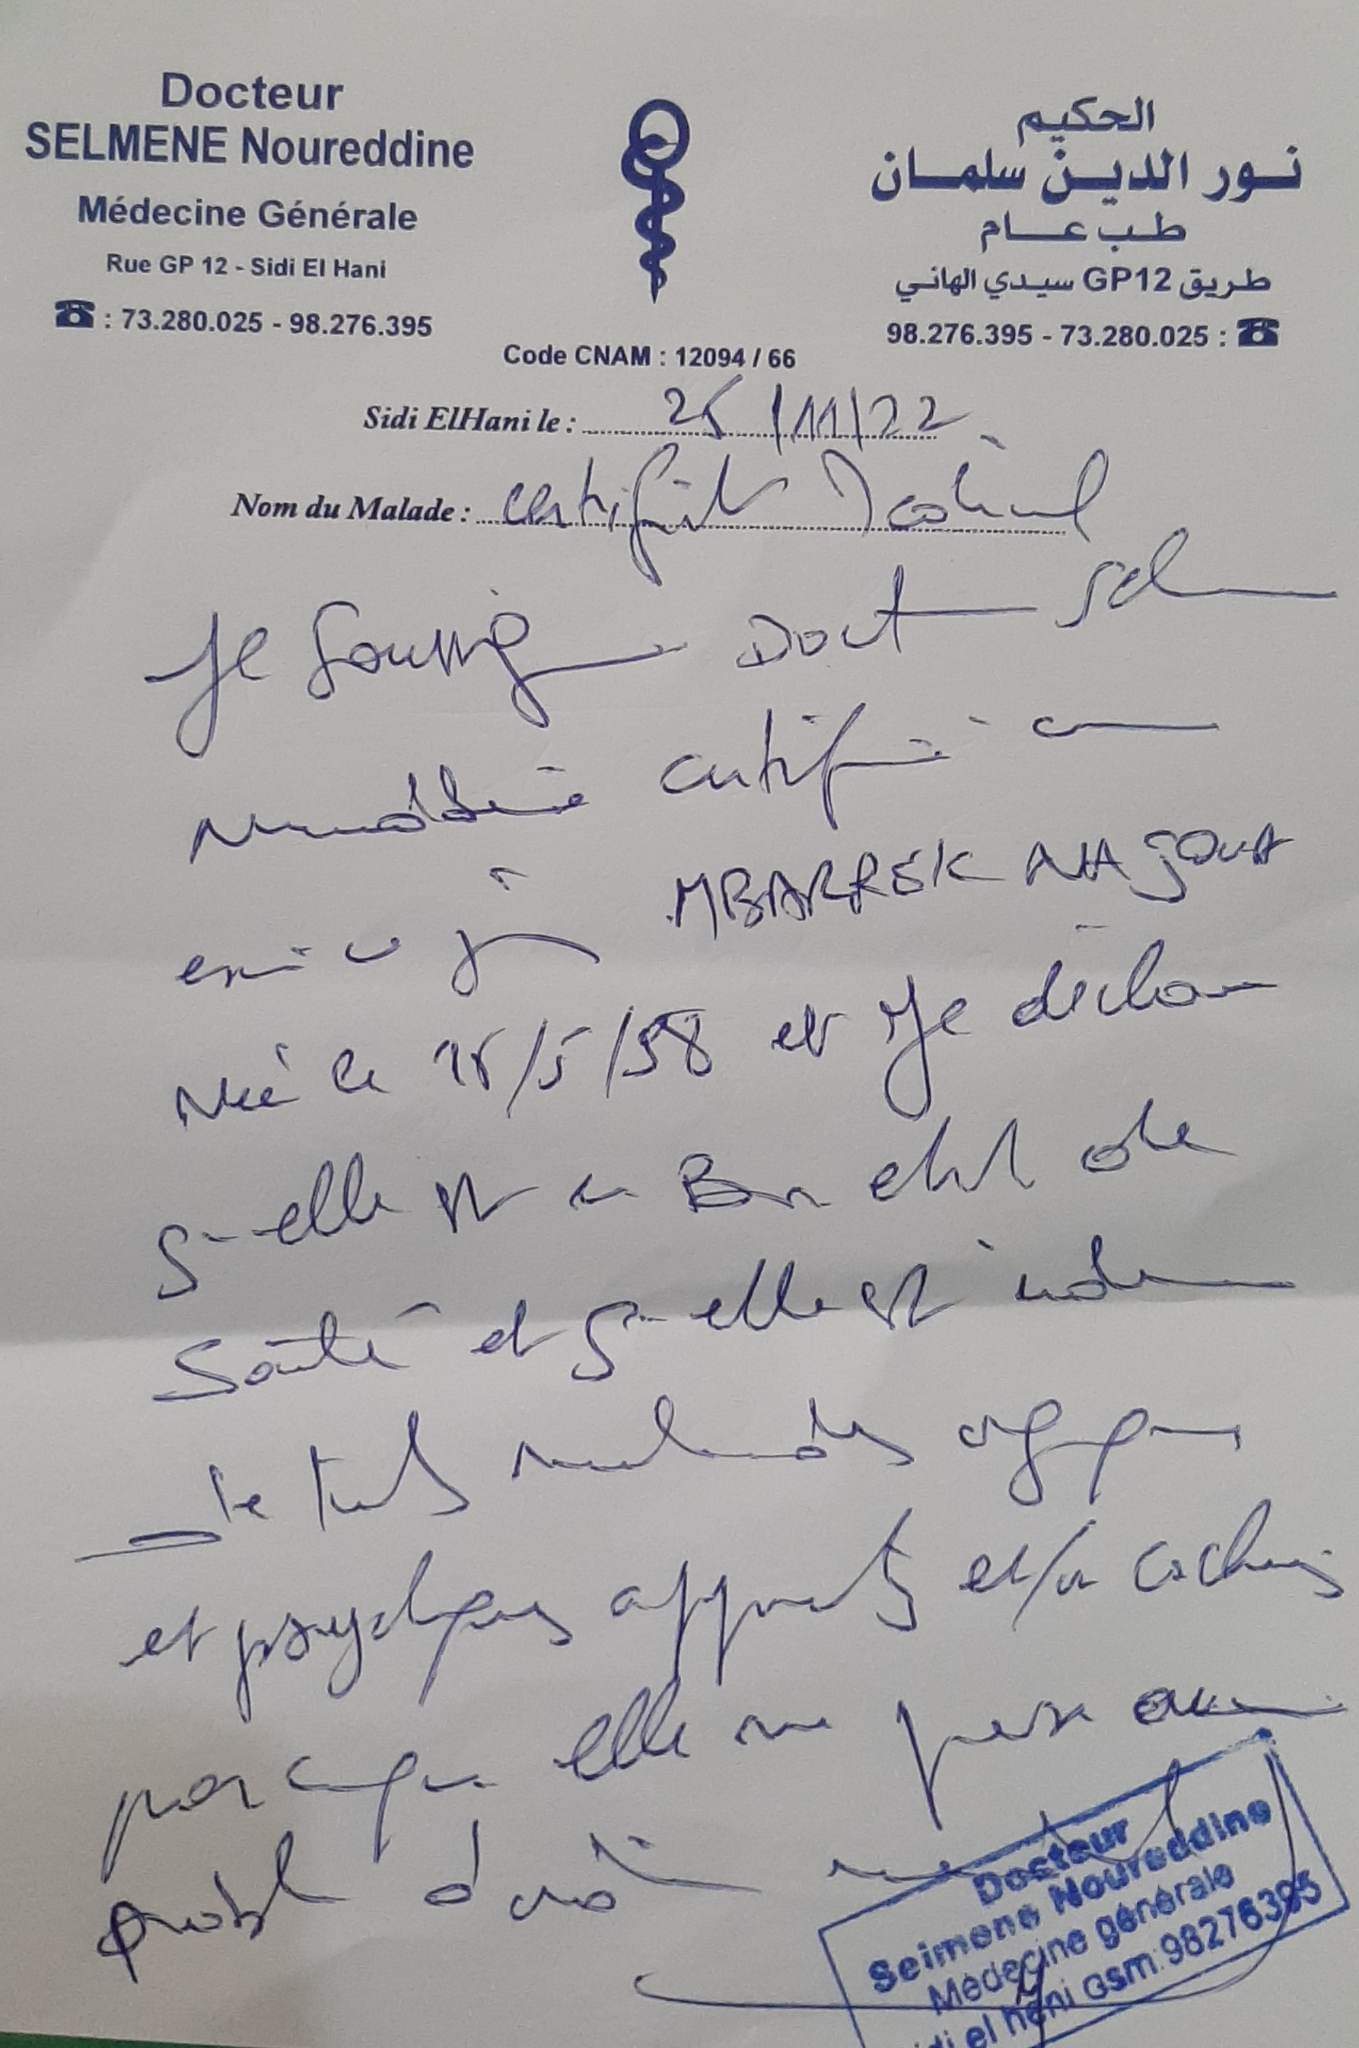 Docteur
SELMENE Noureddine
Médecine Générale
Rue GP 12 - Sidi El Hani
☎ : 73.280.025 - 98.276.395
الحكيم
نور الدين سلمان
طب عام
طريق GP12 سيدي الهاني
98.276.395 - 73.280.025 : ☎
Code CNAM : 12094 / 66
Sidi ElHani le : /11/22
Nom du Malade : certificat médical
Je soussigné Docteur Selmene
Noureddine certifie avoir
examiné MBARREK NAJOUA
Née le et je déclare
qu'elle est en Bon état de
Santé et qu'elle est indemne
de toutes maladies organiques
et psychiques apparentes et/ou
elle ne
d'ordre
Docteur
Selmene Noureddine
Médecine générale
idi el heni Gsm:98276395